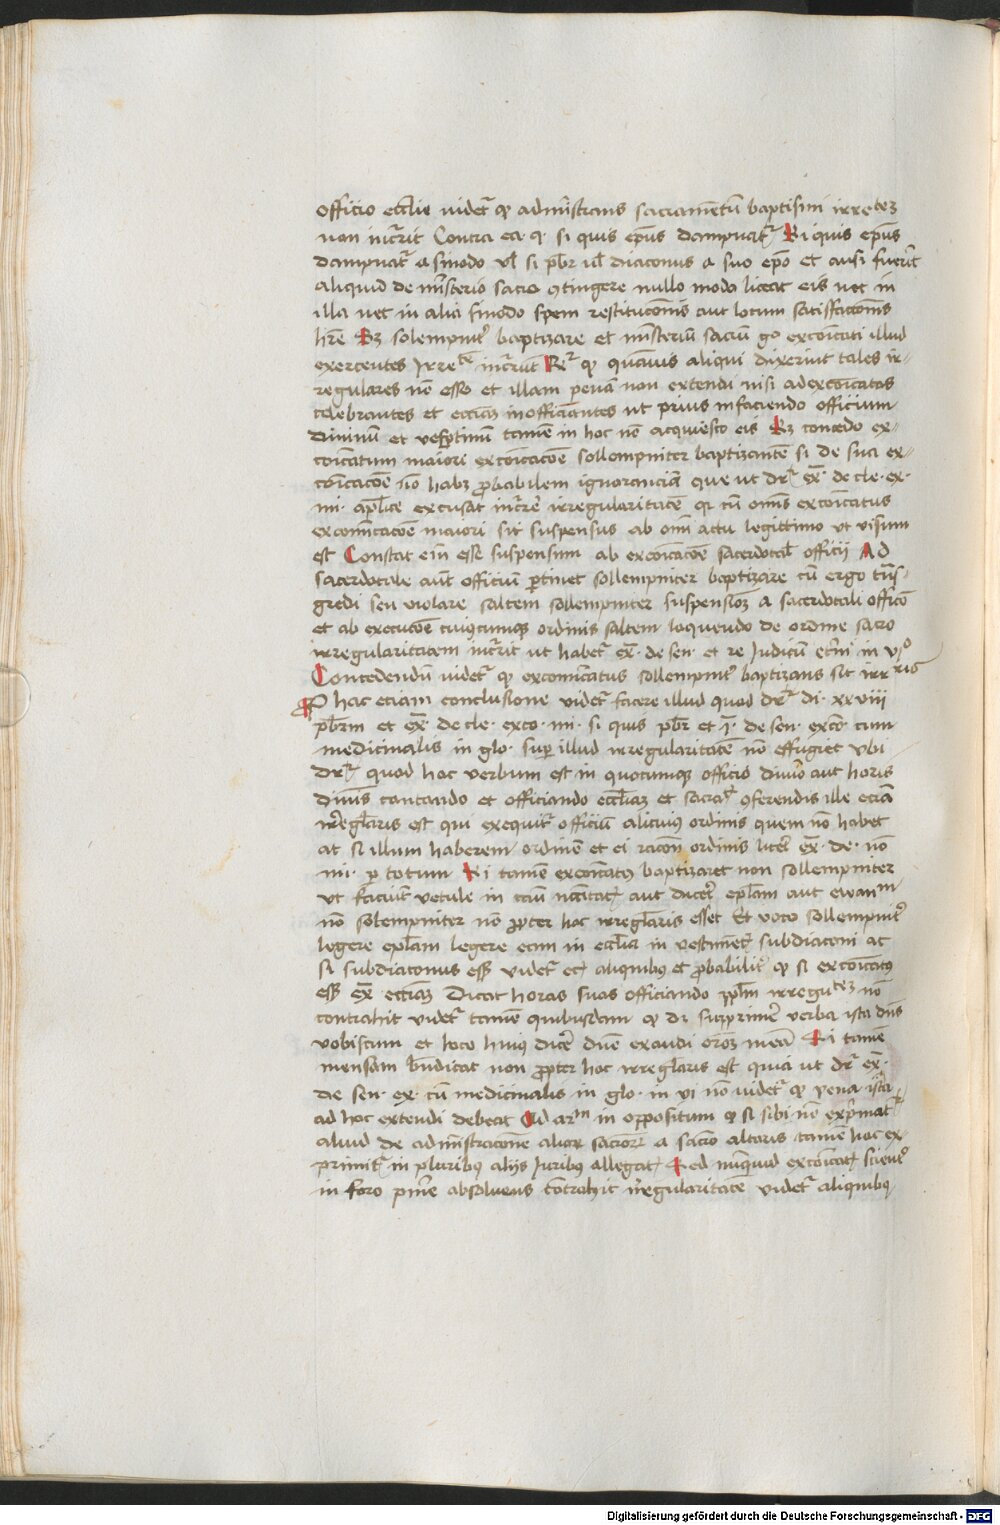 officio ecclie uidetˀ qꝫ admistrans sacramētū baptismi irreᵗᵉᵐ
non incˀrit Contra ea· q· si quis ep̄us dampnatˀ Si quis ep̄us
dampnatˀ a sinodo vl̄ si pb̄r ul̄ diaconus a suo ep̄o et ausi fuer̄t
aliquid de mīsterio sacro ꝯtingere nullo modo liceat eis nec in
illa nec in alia sinodo spem restitucōnis aut locum satisfactiōnis
hr̄e Sꝫ solempnitˀ baptizare et mīsteriū sacrū gͦ excōicati illud
exercentes Irreᵗᵉᵐ incˀrūt Rˀ qꝫ quāuis aliqui dixerint tales ir-
regulares nō esse et illam penam non extendi nisi ad excōicatos
celebrantes et ecciam inofficiantes ut prius in faciendo officium
diuinū et vesptinū tamē in hoc nō acquiesco eis Sꝫ concedo ex-
cōicatum maiori excōicacōe sollempniter baptizantē si de sua ex-
cōicacōe nō habꝫ ꝓbabilem ignoranciā que ut drˀ ex̄· de cle· ex·
mi· apl̄ice excusat incˀrere irregularitatē qꝛ cū omīs excōicatus
excomīcacōe maiori sit suspensus ab omī actu legittimo ut visum
est Constat eīn esse suspensum ab excōicacōe sacerdotal̄ officii Ad
sacerdotale aūt officiū ꝑtinet sollempniter baptizare cū ergo tn̄s-
gredi seu violare saltem sollempniter suspensioꝫ a sacerdotali officō
et ab execucōe cuiuscumqꝫ ordinis saltem loquendo de ordine sacro
irregularitatem incˀrit ut habetˀ ex̄· de sen· et re Judicū c̄· in vjᵒ
Concedendū uidetˀ qꝫ excomīcatus sollempnitˀ baptizans sit irrʳⁱˢ
Pro hac eciam conclusione videtˀ facere illud quod drˀ di· xxviii
pb̄rm et ex̄· de cle· exco· mi· si quis pb̄r et j· de sen· excō· cum
medicinalis in glo· suꝑ illud irregularitatē nō effugiet vbi
drˀ quod hoc verbum est in quocumqꝫ officio diuīo aut horis
diuīs cantando et officiando eccl̄iaꝫ et sacraˀ ꝯferendis ille eciā
irreglaris est qui exequitˀ officiū alicuiꝰ ordinis quem nō habet
ac si illum haberem ordinē et ei racōn ordinis licer̄ ex̄· de· nō
mi· ꝑ totum Si tamē excōicatꝰ baptizaret non sollempniter
ut faciūt vetule in casū nc̄citatꝭ aut dicer̄ epl̄am aut ewanᵐ
nō solempniter nō ꝓpter hoc irreglaris esset Et voco sollempnitˀ
legere epl̄am legere eam in eccl̄ia in vestimētꝭ subdiaconi ac
si subdiaconus esset videtˀ eciā aliquibꝰ et ꝓbabilitˀ qꝫ si excōicatꝰ
esset ex̄ ecciaꝫ Dicat horas suas officiando ipl̄m irreguᵗᵉᵐ nō
contrahit videtˀ tamē quibusdam qꝫ dꝫ supprimēˀ verba ista dn̄s
vobiscum et loco huiꝰ dicēˀ dn̄e exaudi or̄oꝫ meā Si tamē
mensam bn̄dicat non ꝓpter hoc irreglaris est quia ut drˀ ex̄·
de sen· ex· cū medicinalis in glo· in vi nō uidetˀ qꝫ pena ista
ad hoc extendi debeat Ad arᵐ in oppositum qꝫ si sibi nō exp̄matˀ
aliud de admīstracione alioꝝ sacroꝝ a sacro altaris tamē hoc ex-
primitˀ in pluribꝰ alijs Juribꝰ allegatꝭ Sed nūquid excōicatꝰ scientˀ
in foro pīne absoluens contrahit irregularitatē videtˀ aliquibꝰ
Digitalisierung gefördert durch die Deutsche Forschungsgemeinschaft - DFG